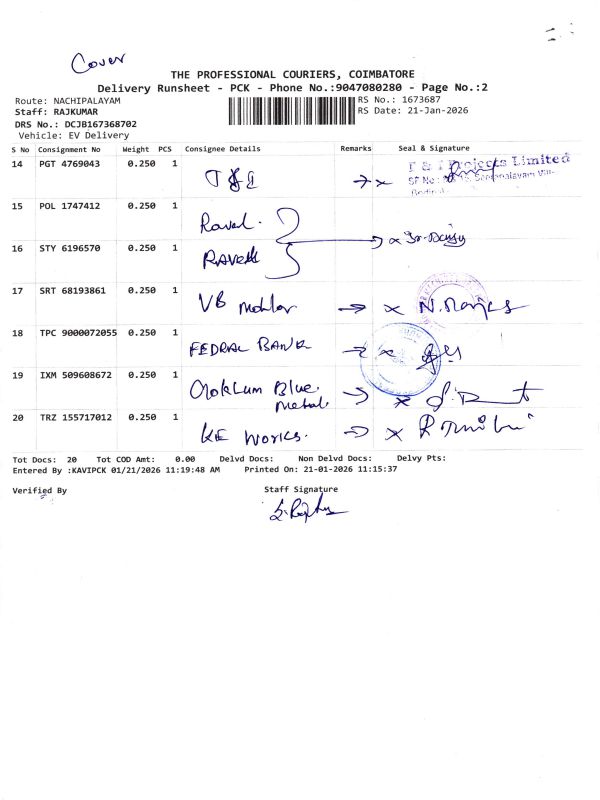 Cover
THE PROFESSIONAL COURIERS, COIMBATORE
Delivery Runsheet - PCK - Phone No.:9047080280 - Page No.:2
Route: NACHIPALAYAM
RS No.: 1673687
Staff: RAJKUMAR
RS Date: 21-Jan-2026
DRS No.: DCJB167368702
Vehicle: EV Delivery
S No Consignment No Weight PCS Consignee Details Remarks Seal & Signature
14 PGT 4769043 0.250 1 Projects Limited
15 POL 1747412 0.250 1
16 STY 6196570 0.250 1
17 SRT 68193861 0.250 1 VB
18 TPC 9000072055 0.250 1 FEDRAL BANK
19 IXM 509608672 0.250 1 Blue
Metal
20 TRZ 155717012 0.250 1 KE Works.
Tot Docs: 20 Tot COD Amt: 0.00 Delvd Docs: Non Delvd Docs: Delvy Pts:
Entered By :KAVIPCK 01/21/2026 11:19:48 AM Printed On: 21-01-2026 11:15:37
Verified By Staff Signature